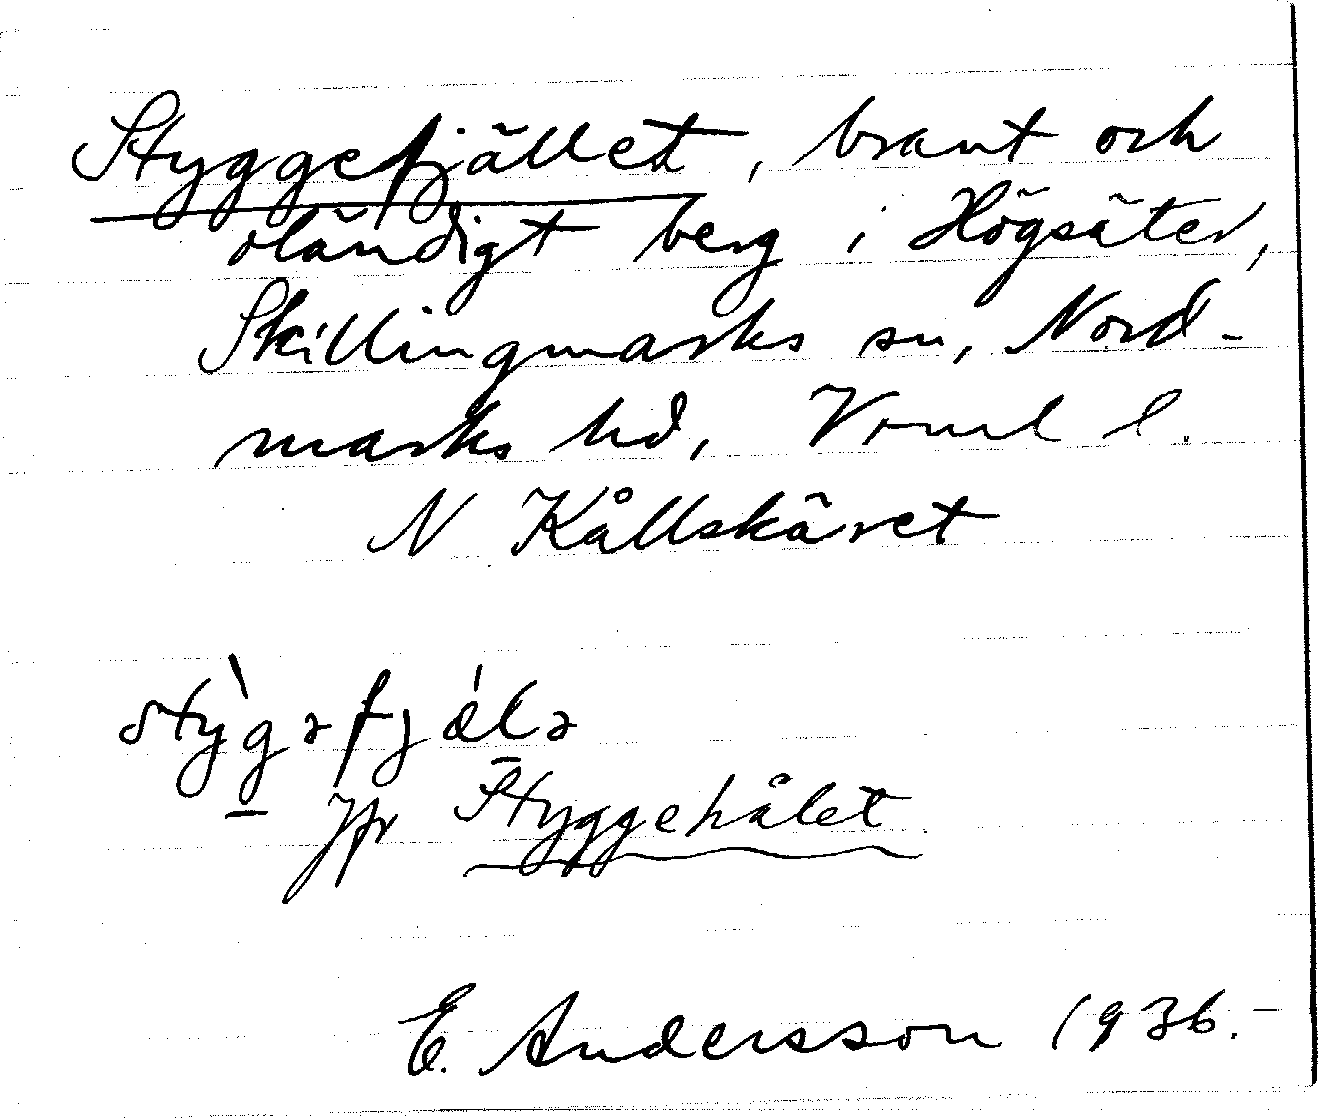 Styggefjället, brant och
oländigt berg i Högsäter,
Skillingmarks sn, Nord-
marks hd, Vrml l.
N Kållskäret
stỳgəfjælə
Jfr Styggehålet
E. Andersson 1936.-